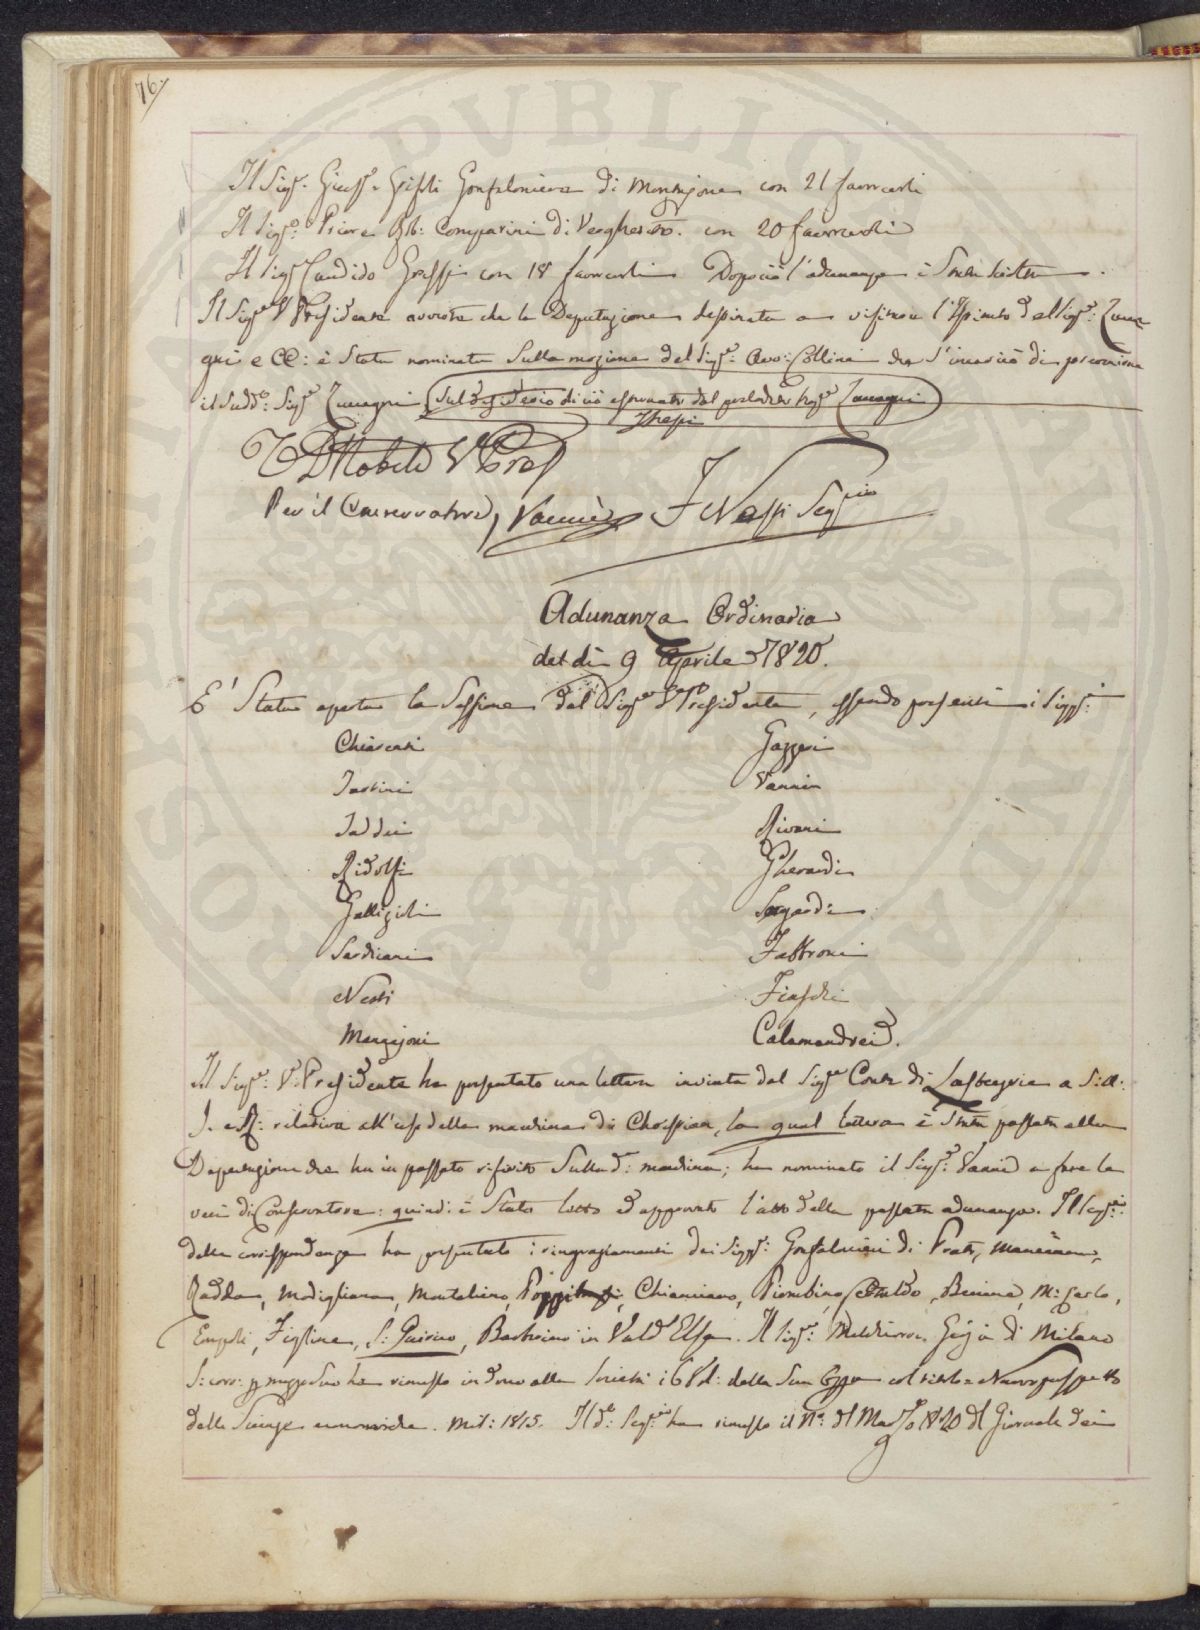 76.
Il Sig.e Gius.e Grifoli Gonfaloniere di Monterigione con 21 favorevoli
Il Sig.e Priore Gb: Comparini di Verghereto. con 20 favorevoli
Il Sig.e Candido Grassi con 18 favorevoli Dopociò l'adunanza è Stata Sciolta.
Il Sig.e V. Presidente avverte che la Deputazione destinata a visitare l'Istituto del Sig.e: Zuca
gni e CC: è Stata nominata Sulla mozione del Sig.e Avv: Collini che S'incaricò di prevenirne
il Sudd.o: Sig.e Zuccagni Sul desiderio di ciò esternato dal predetto Sig.e Zuccagni
T D Nobili V. Pres
Per il Conservatore, Vannie F Nesti Seg.rio
Adunanza Ordinaria
del dì 9 Aprile 1820.
E' Stata aperta la Sessione dal Sig.e V. Presidente, essendo presenti i Sigg.i:
Chiarenti Gazzeri
Tartini Vannie
Taddei Rivani
Ridolfi Gherardi
Gallizioli Sergardi
Sardicani Fabbroni
Nesti Fiaschi
Mangajoni Calamandrei.
Il Sig.e: V. Presidente ha presentato una lettera inviata dal Sig.e Conte di Lasteyrie a S: A:
I. e R: relativa all'uso della macchina di Christian, la qual lettera è Stata passata alla
Deputazione che ha in passato riferito Sulla d: macchina; ha nominato il Sig.e: Vannie a fare le
veci di Conservatore: quindi è Stato letto ed approvato l'atto della passata adunanza. Il Seg.rio:
della corrispondenza ha presentato i ringraziamenti dei Sigg.i: Gonfalonieri di Prato,
Radda, Modigliana, Montalcino, Chianciano, Piombino, Certaldo, Bibbiena, M: Carlo,
Empoli, Figline, S: Quirico, Barberino in Val d'Elsa. Il Sig.e: Melchiorre Gioja di Milano
S: corr: ha rimesso in dono alla Società i 6 Vol: della Sua Opera col titolo = Nuovo prospetto
delle Scienze economiche. Mil: 1815. Il d.o Seg.rio ha rimesso il N.o di Marzo 1820 del Giornale dei